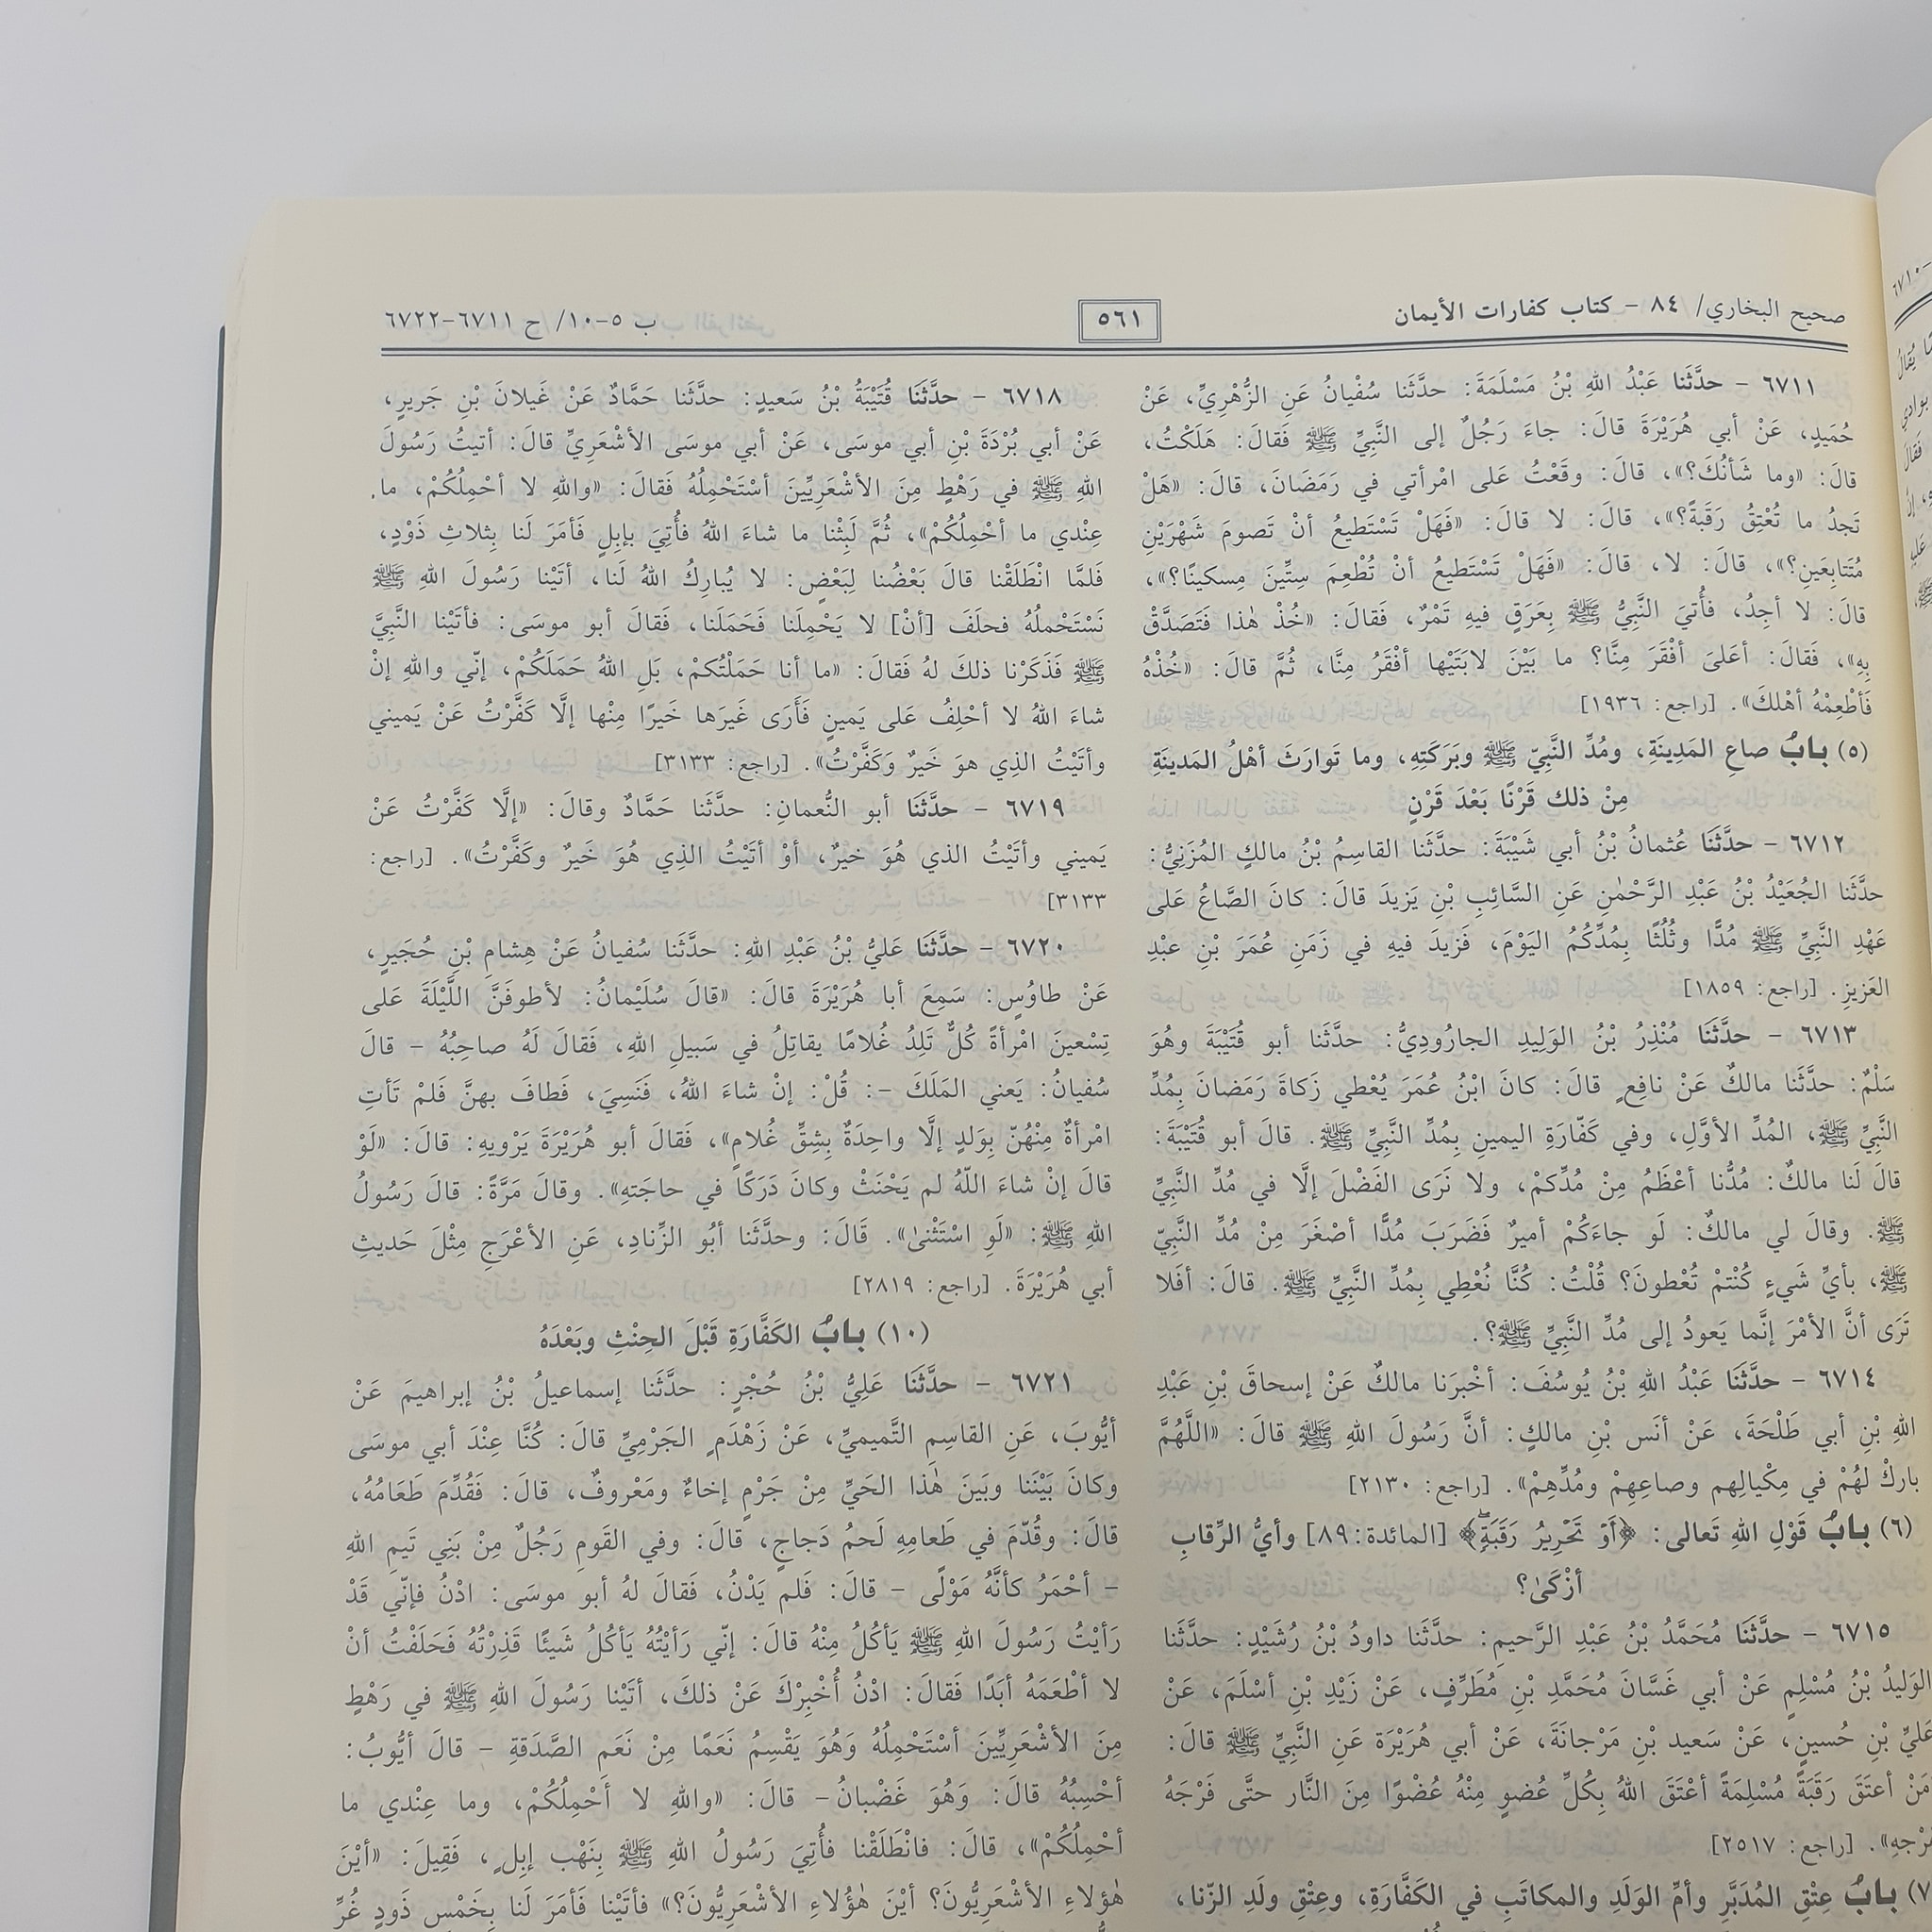 صحيح البخاري/ ٨٤ – كتاب كفارات الأيمان
٥٦١
ب ٥–١٠/ ح ٦٧١١–٦٧٢٢
٦٧١١ – حدَّثَنا عَبْدُ اللهِ بْنُ مَسْلَمَةَ: حدَّثَنا سُفْيانُ عَنِ الزُّهْرِيِّ، عَنْ
حُمَيدٍ، عَنْ أبي هُرَيْرَةَ قالَ: جاءَ رَجُلٌ إلى النَّبِيِّ ﷺ فَقالَ: هَلَكْتُ،
قالَ: «وما شَأنُكَ؟»، قالَ: وقَعْتُ عَلى امْرأتي في رَمَضَانَ، قالَ: «هَلْ
تَجدُ ما تُعْتِقُ رَقَبَةً؟»، قالَ: لا قالَ: «فَهَلْ تَسْتَطيعُ أنْ تَصومَ شَهْرَيْنِ
مُتَتابِعَينِ؟»، قالَ: لا، قالَ: «فَهَلْ تَسْتَطيعُ أنْ تُطْعِمَ سِتِّينَ مِسكينًا؟»،
قالَ: لا أجِدُ، فأُتيَ النَّبِيُّ ﷺ بِعَرَقٍ فيهِ تَمْرٌ، فَقالَ: «خُذْ هٰذا فَتَصَدَّقْ
بِهِ»، فَقالَ: أعَلىَ أفْقَرَ مِنَّا؟ ما بَيْنَ لابَتَيْها أفْقَرُ مِنَّا، ثُمَّ قالَ: «خُذْهُ
فَأطْعِمْهُ أهْلكَ». [راجع: ١٩٣٦]
(٥) بابُ صاعِ المَدِينَةِ، ومُدِّ النَّبِيّ ﷺ وبَرَكَتِهِ، وما تَوارَثَ أهْلُ المَدينَةِ
مِنْ ذلك قَرْنًا بَعْدَ قَرْنٍ
٦٧١٢ – حدَّثَنَا عُثمانُ بْنُ أبي شَيْبَةَ: حدَّثَنا القاسِمُ بْنُ مالكٍ المُزَنِيُّ:
حدَّثَنا الجُعَيْدُ بْنُ عَبْدِ الرَّحْمٰنِ عَنِ السَّائِبِ بْنِ يَزيدَ قالَ: كانَ الصَّاعُ عَلى
عَهْدِ النَّبِيِّ ﷺ مُدًّا وثُلُثًا بِمُدِّكُمُ اليَوْمَ، فَزيدَ فيهِ في زَمَنِ عُمَرَ بْنِ عبْدِ
العَزيزِ. [راجع: ١٨٥٩]
٦٧١٣ – حدَّثَنَا مُنْذِرُ بْنُ الوَلِيدِ الجارُودِيُّ: حدَّثَنا أبو قُتَيْبَةَ وهُوَ
سَلْمٌ: حدَّثَنا مالكٌ عَنْ نافِعٍ قالَ: كانَ ابْنُ عُمَرَ يُعْطي زَكاةَ رَمَضانَ بِمُدِّ
النَّبِيِّ ﷺ، المُدِّ الأوَّلِ، وفي كَفّارَةِ اليمينِ بِمُدِّ النَّبِيِّ ﷺ. قالَ أبو قُتَيْبَةَ:
قالَ لَنا مالكٌ: مُدُّنا أعْظَمُ مِنْ مُدِّكمْ، ولا نَرَى الفَضْلَ إلَّا في مُدِّ النَّبِيِّ
ﷺ. وقالَ لي مالكٌ: لَو جاءَكُمْ أميرٌ فَضَرَبَ مُدًّا أصْغَرَ مِنْ مُدِّ النَّبِيّ
ﷺ، بأيِّ شَيءٍ كُنْتمْ تُعْطونَ؟ قُلْتُ: كُنَّا نُعْطِي بِمُدِّ النَّبِيِّ ﷺ. قالَ: أفَلا
تَرَى أنَّ الأمْرَ إنَّما يَعودُ إلى مُدِّ النَّبِيِّ ﷺ؟.
٦٧١٤ – حدَّثَنَا عَبْدُ اللهِ بْنُ يُوسُفَ: أخْبرَنا مالكٌ عَنْ إسحاقَ بْنِ عَبْدِ
اللهِ بْنِ أبي طَلْحَةَ، عَنْ أنَس بْنِ مالكٍ: أنَّ رَسُولَ اللهِ ﷺ قالَ: «اللَّهُمَّ
باركْ لهُمْ في مِكْيالِهِم وصاعِهِمْ ومُدِّهِمْ». [راجع: ٢١٣٠]
(٦) بابُ قَوْلِ اللهِ تَعالى: ﴿أَوْ تَحْرِيرُ رَقَبَةٍ﴾ [المائدة: ٨٩] وأيُّ الرِّقابِ
أزْكَىٰ؟
٦٧١٥ – حدَّثَنَا مُحَمَّدُ بْنُ عَبْدِ الرَّحيمِ: حدَّثَنا داودُ بْنُ رُشَيْدٍ: حدَّثَنا
الوَليدُ بْنُ مُسْلِمٍ عَنْ أبي غَسَّانَ مُحَمَّدِ بْنِ مُطَرِّفٍ، عَنْ زَيْدِ بْنِ أسْلَمَ، عَنْ
عَليِّ بْنِ حُسينٍ، عَنْ سَعيد بْنِ مَرْجانَةَ، عَنْ أبي هُرَيْرَة عَنِ النَّبِيِّ ﷺ قالَ:
مَنْ أعتَقَ رَقَبَةً مُسْلِمَةً أعْتَقَ اللهُ بِكُلِّ عُضوٍ مِنْهُ عُضْوًا مِنَ النَّار حتَّى فَرْجَهُ
[راجع: ٢٥١٧]
بابُ عِتْقِ المُدَبَّرِ وأمِّ الوَلَدِ والمكاتَبِ في الكَفَّارَةِ، وعِتْقِ ولَدِ الزّنا،
٦٧١٨ – حدَّثَنَا قُتَيْبَةُ بْنُ سَعيدٍ: حدَّثَنا حَمَّادٌ عَنْ غَيلانَ بْنِ جَريرٍ،
عَنْ أبي بُرْدَةَ بْنِ أبي موسَى، عَنْ أبي موسَى الأشْعَريِّ قالَ: أتيتُ رَسُولَ
اللهِ ﷺ في رَهْطٍ مِنَ الأشْعَرِيِّينَ أسْتَحْمِلُهُ فَقالَ: «واللهِ لا أحْمِلُكُمْ، ما
عِنْدي ما أحْمِلُكُمْ»، ثُمَّ لَبِثْنا ما شاءَ اللهُ فأُتِيَ بإبِلٍ فَأمَرَ لَنا بِثلاثِ ذَوْدٍ،
فَلمَّا انْطَلَقْنا قالَ بَعْضُنا لِبَعْضٍ: لا يُبارِكُ اللهُ لَنا، أتَيْنا رَسُولَ اللهِ ﷺ
نَسْتَحْملُهُ فحلَفَ [أنْ] لا يَحْمِلَنا فَحَمَلَنا، فَقالَ أبو موسَى: فأتَيْنا النَّبِيَّ
ﷺ فَذَكَرْنا ذلكَ لهُ فَقالَ: «ما أنا حَمَلْتُكمْ، بَلِ اللهُ حَمَلَكُمْ، إنّي واللهِ إنْ
شاءَ اللهُ لا أحْلِفُ عَلى يَمينٍ فَأَرَى غَيرَها خَيرًا مِنْها إلَّا كَفَّرْتُ عَنْ يَميني
وأتَيْتُ الذِي هوَ خَيرٌ وَكَفَّرْتُ». [راجع: ٣١٣٣]
٦٧١٩ – حدَّثَنَا أبو النُّعمانِ: حدَّثَنا حَمَّادٌ وقالَ: «إلَّا كَفَّرْتُ عَنْ
يَميني وأتَيْتُ الذي هُوَ خيرٌ، أوْ أتَيْتُ الذِي هُوَ خَيرٌ وكَفَّرْتُ». [راجع:
٣١٣٣]
٦٧٢٠ – حدَّثَنَا عَليُّ بْنُ عَبْدِ اللهِ: حدَّثَنا سُفيانُ عَنْ هِشامِ بْنِ حُجَيرٍ،
عَنْ طاوُسٍ: سَمِعَ أبا هُرَيْرَةَ قالَ: «قالَ سُلَيْمانُ: لأطوفَنَّ اللَّيْلَةَ عَلى
تِسْعينَ امْرأةً كُلٌّ تَلِدُ غُلامًا يقاتِلُ في سَبيلِ اللهِ، فَقالَ لَهُ صاحِبُهُ – قالَ
سُفيانُ: يَعني المَلَكَ –: قُلْ: إنْ شاءَ اللهُ، فَنَسِيَ، فَطافَ بهنَّ فَلمْ تَأتِ
امْرأةٌ مِنْهُنّ بِوَلدٍ إلَّا واحِدَةٌ بِشِقِّ غُلامٍ»، فَقالَ أبو هُرَيْرَةَ يَرْويهِ: قالَ: «لَوْ
قالَ إنْ شاءَ اللّهُ لم يَحْنَثْ وكانَ دَرَكًا في حاجَتهِ». وقالَ مَرَّةً: قالَ رَسُولُ
اللهِ ﷺ: «لَوِ اسْتَثْنىٰ». قَالَ: وحدَّثَنا أبُو الزِّنادِ، عَنِ الأعْرَجِ مِثْلَ حَديثِ
أبي هُرَيْرَةَ. [راجع: ٢٨١٩]
(١٠) بابُ الكَفَّارَةِ قَبْلَ الحِنْثِ وبَعْدَهُ
٦٧٢١ – حدَّثَنَا عَلِيُّ بْنُ حُجْرٍ: حدَّثَنا إسماعيلُ بْنُ إبراهيمَ عَنْ
أيُّوبَ، عَنِ القاسِمِ التَّميميِّ، عَنْ زَهْدَمٍ الجَرْمِيِّ قالَ: كُنَّا عِنْدَ أبي موسَى
وكانَ بَيْنَنا وبَينَ هٰذا الحَيِّ مِنْ جَرْمٍ إخاءٌ ومَعْروفٌ، قالَ: فَقُدِّمَ طَعَامُهُ،
قالَ: وقُدّمَ في طَعامِهِ لَحمُ دَجاجٍ، قالَ: وفي القَومِ رَجُلٌ مِنْ بَنِي تَيمِ اللهِ
– أحْمَرُ كأنَّهُ مَوْلًى – قالَ: فَلم يَدْنُ، فَقالَ لهُ أبو موسَى: ادْنُ فإنّي قَدْ
رَأيْتُ رَسُولَ اللهِ ﷺ يَأكُلُ مِنْهُ قالَ: إنّي رَأيْتُهُ يَأكُلُ شَيئًا قَذِرْتُهُ فَحَلَفْتُ أنْ
لا أطْعَمَهُ أبَدًا فَقالَ: ادْنُ أُخْبِرْكَ عَنْ ذلكَ، أتَيْنا رَسُولَ اللهِ ﷺ في رَهْطٍ
مِنَ الأشْعَرِيِّينَ أسْتَحْمِلُهُ وَهُوَ يَقْسِمُ نَعَمًا مِنْ نَعَمِ الصَّدَقةِ – قالَ أيُّوبُ:
أحْسِبُهُ قالَ: وَهُوَ غَضْبانُ– قالَ: «واللهِ لا أَحْمِلُكُمْ، وما عِنْدي ما
أحْمِلُكُمْ»، قالَ: فانْطَلَقْنا فأُتِيَ رَسُولُ اللهِ ﷺ بِنَهْب إبِلٍ، فَقِيلَ: «أيْنَ
هٰؤلاءِ الأشْعَرِيُّونَ؟ أيْنَ هٰؤُلاءِ الأشْعَرِيُّونَ؟» فأتَيْنا فَأمَرَ لَنا بِخَمْس ذَودٍ غُرِّ